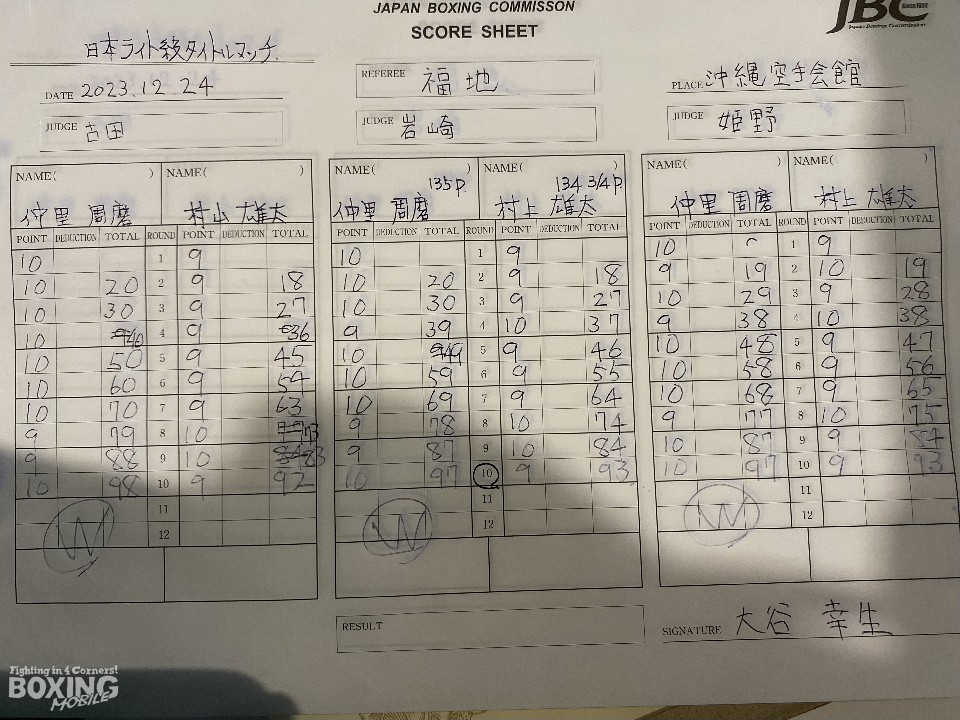 JAPAN BOXING COMMISSON
SCORE SHEET
JBC
日本ライト級タイトルマッチ.
DATE 2023.12.24
REFEREE 福地
PLACE 沖縄空手会館
JUDGE 吉田
JUDGE 岩崎
JUDGE 姫野
NAME( ) NAME( )
仲里 周磨 村上 雄太
POINT DEDUCTION TOTAL ROUND POINT DEDUCTION TOTAL
10 1 9
10 20 2 9 18
10 30 3 9 27
10 40 4 9 36
10 50 5 9 45
10 60 6 9 54
10 70 7 9 63
9 79 8 10 73
9 88 9 10 83
10 98 10 9 92
11
12
NAME( ) NAME( )
135P 134 3/4P
仲里 周磨 村上 雄太
POINT DEDUCTION TOTAL ROUND POINT DEDUCTION TOTAL
10 1 9
10 20 2 9 18
10 30 3 9 27
9 39 4 10 37
10 49 5 9 46
10 59 6 9 55
10 69 7 9 64
9 78 8 10 74
9 87 9 10 84
10 97 10 9 93
11
12
NAME( ) NAME( )
仲里 周磨 村上 雄太
POINT DEDUCTION TOTAL ROUND POINT DEDUCTION TOTAL
10 1 9
9 19 2 10 19
10 29 3 9 28
9 38 4 10 38
10 48 5 9 47
10 58 6 9 56
10 68 7 9 65
9 77 8 10 75
10 87 9 9 84
10 97 10 9 93
11
12
RESULT
SIGNATURE 大谷 幸生
Fighting in 4 Corners!
BOXING
MOBILE